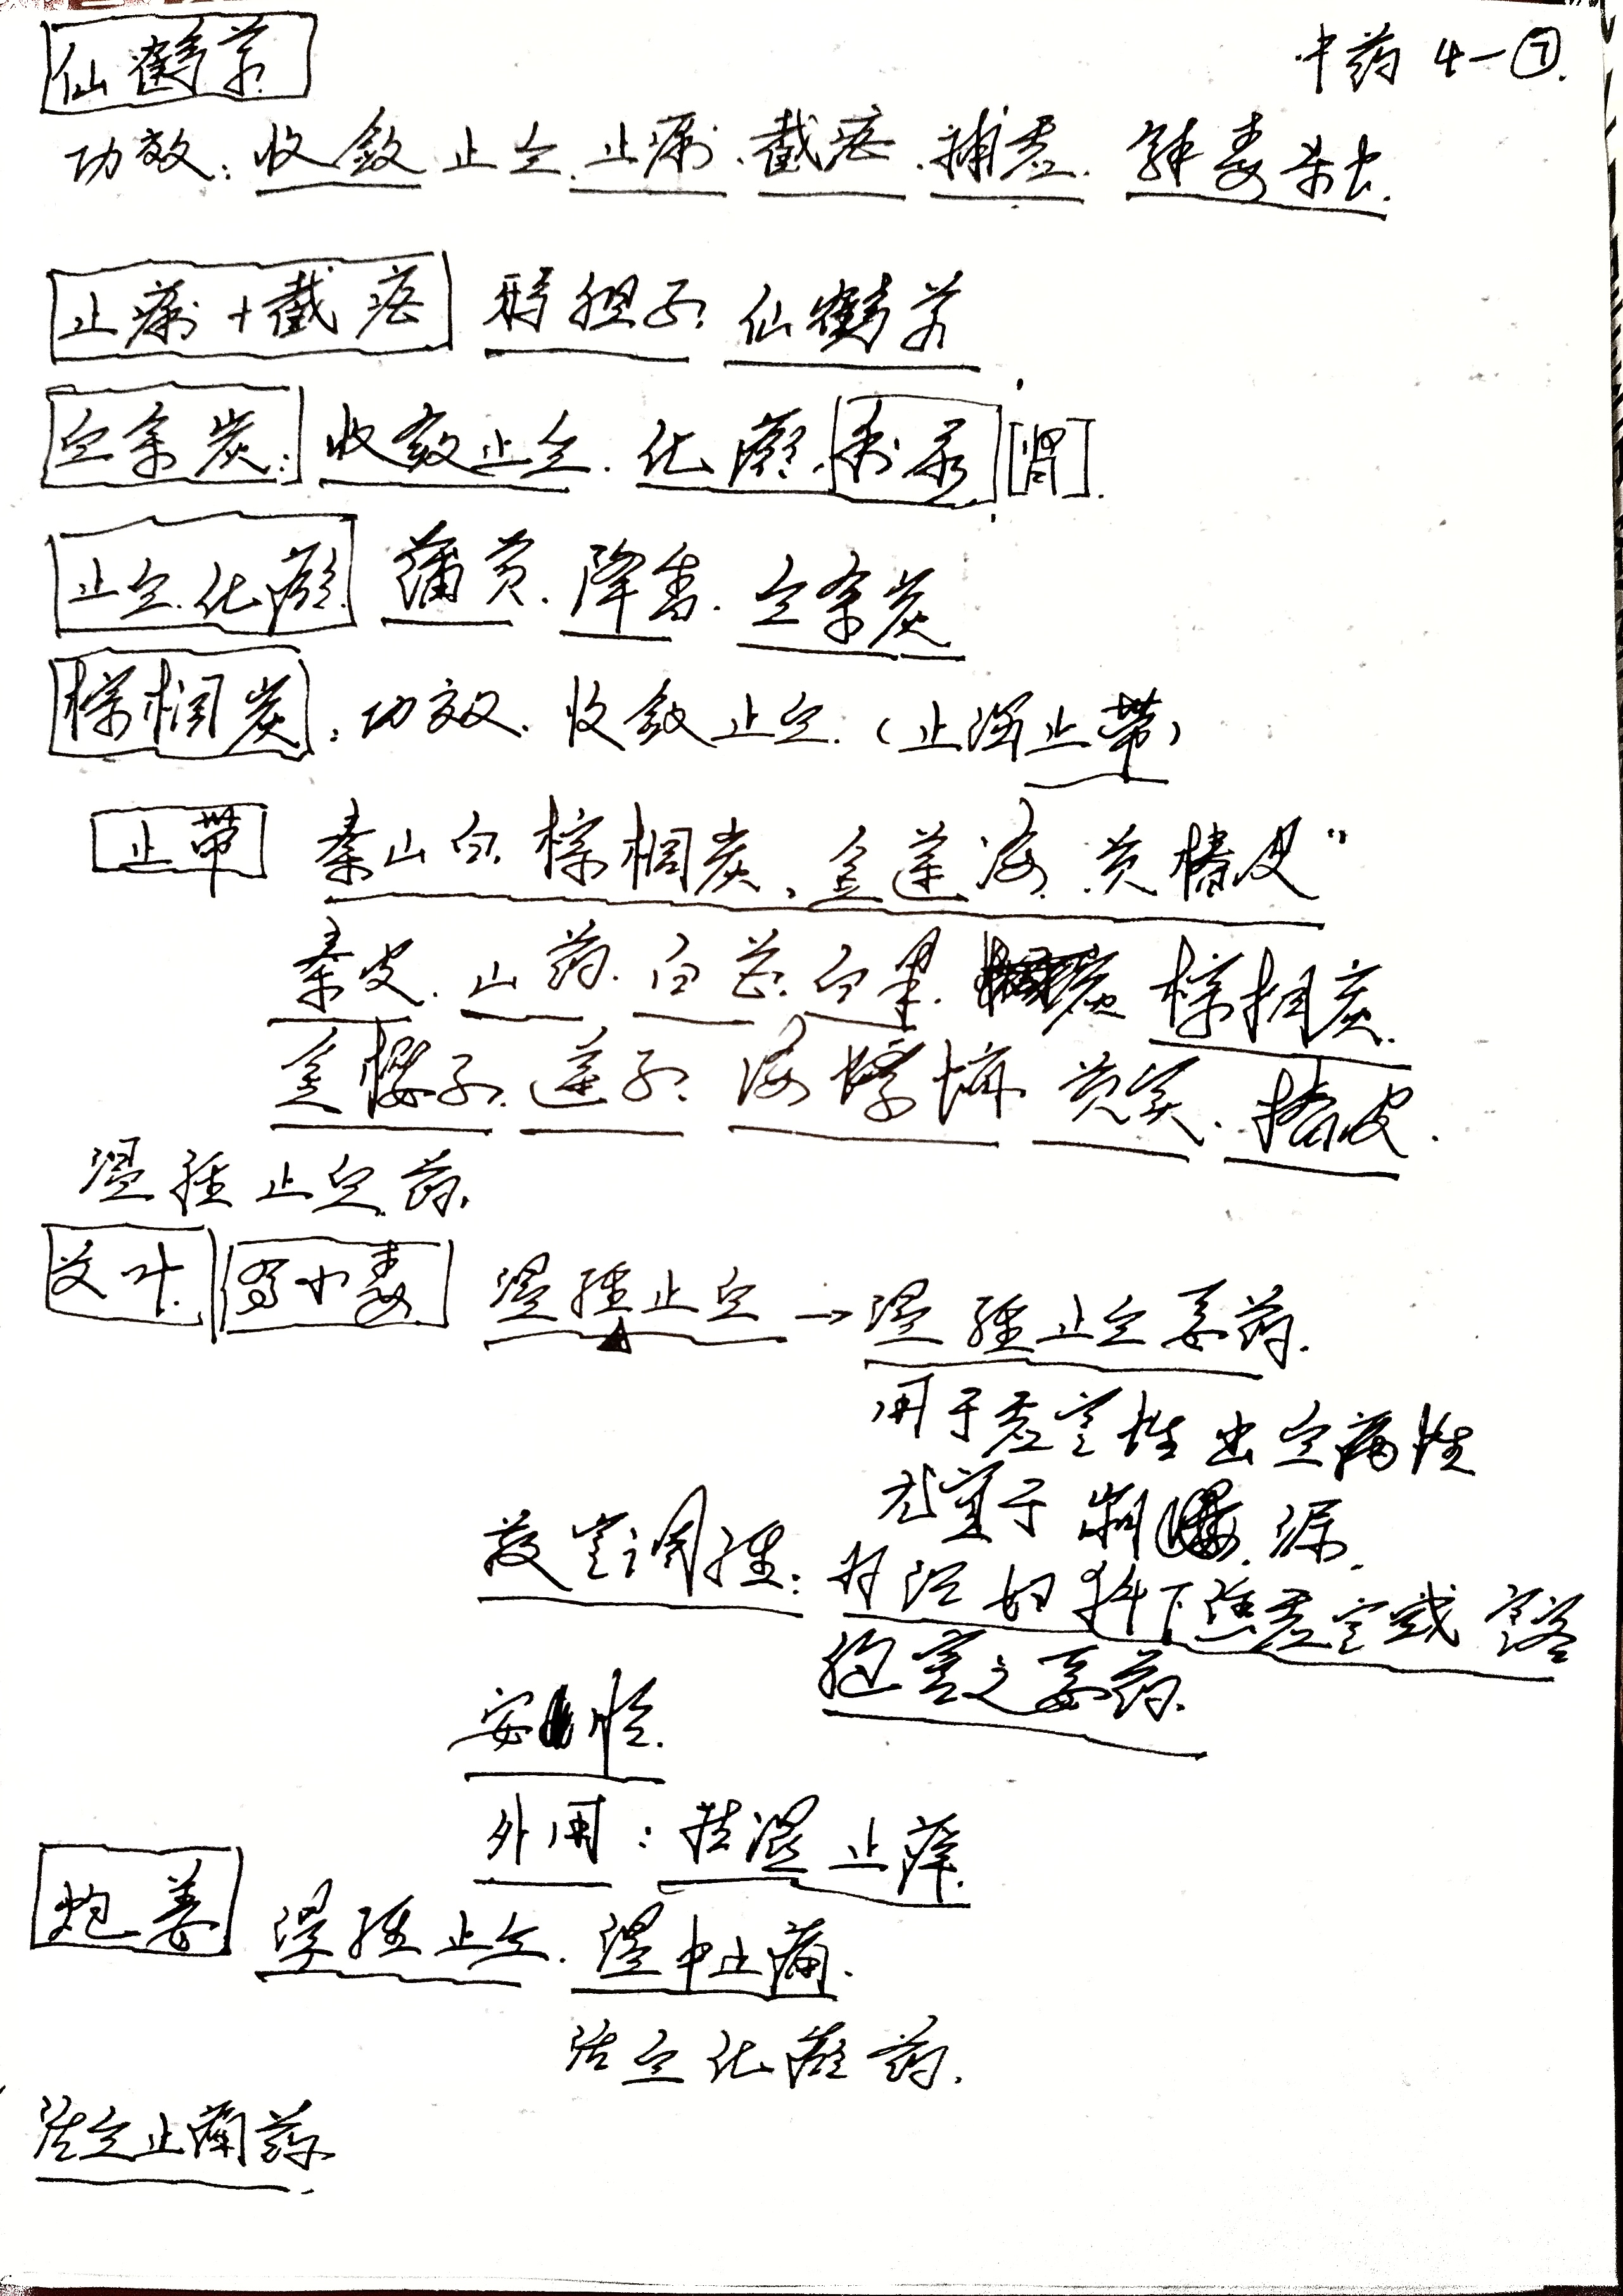 仙鹤草
中药 4-⑦.
功效：收敛止血.止痢.截疟.补虚.解毒杀虫.
止痢+截疟 鸦胆子.仙鹤草
血余炭：收敛止血.化瘀.利尿[肾].
止血.化瘀. 蒲黄.降香.血余炭
棕榈炭：功效.收敛止血.（止泻止带）
止带 秦山白.棕榈炭、金莲海.芡椿皮"
秦皮.山药.白芷.白果.棕榈炭.
金樱子.莲子.海螵蛸 芡实.椿皮.
温经止血药.
艾叶.有小毒 温经止血→温经止血要药.
用于虚寒性出血病性
尤宜于崩漏.
散寒调经：为治妇科下焦虚寒或寒客
胞宫之要药.
安胎.
外用：祛湿止痒.
炮姜 温经止血.温中止痛.
活血化瘀药.
活血止痛药